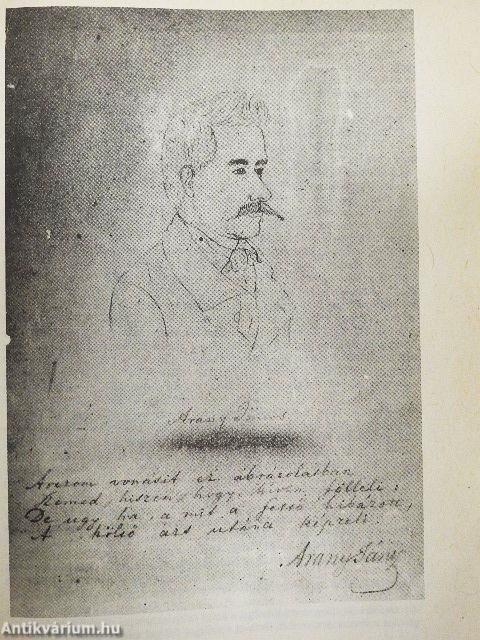 Arany János
Arczom vonásit ez ábrázolásban
Remed, hiszem, hogy híven föllelé:
De ugy, ha, a mit a festő hibázott,
A költő ász utána képzeli.
Arany János
Antikvárium.hu